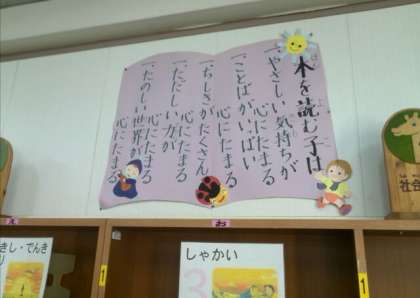 本を読む子は
一、やさしい気持ちが
心にたまる
一、ことばがいっぱい
心にたまる
一、ちしきがたくさん
心にたまる
一、ただしい方が
心にたまる
一、たのしい世界が
心にたまる
社会
え
お
きし・でんき
り
しゃかい
3
1
1